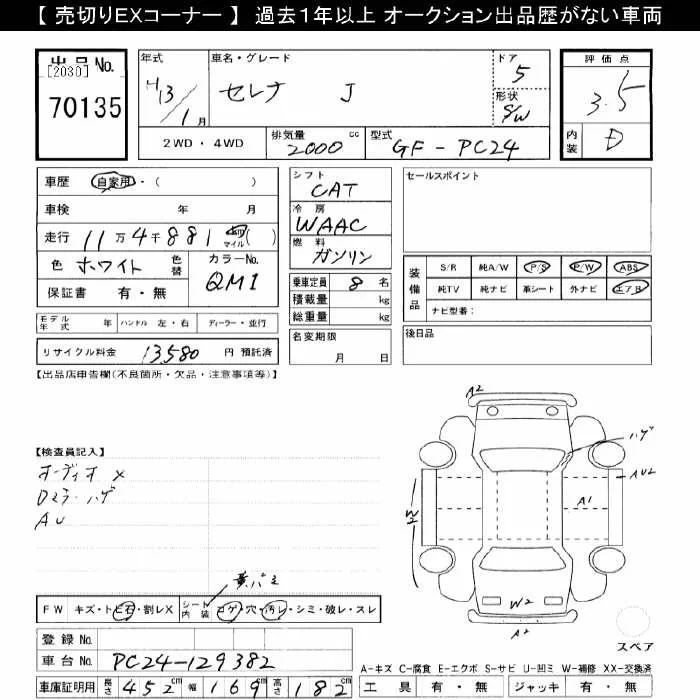 【 売切りEXコーナー 】 過去1年以上 オークション出品歴がない車両
出品No.
[2030]
70135
年式
H13/1月
車名・グレード
セレナ J
ドア
5
形状
S/W
2WD・4WD
排気量
2000 cc
型式
GF-PC24
評価点
3.5
内装
D
車歴 自家用・( )
車検 年 月
走行 11万4千881 km マイル ( )
色 ホワイト 色替
カラーNo.
QM1
保証書 有・無
モデル年式 年 ハンドル 左・右 ディーラー・並行
リサイクル料金 13,580 円 預託済
シフト
CAT
冷房
WAAC
燃料
ガソリン
乗車定員 8 名
積載量 kg
総重量 kg
名変期限
月 日
セールスポイント
装備品
S/R 純A/W P/S P/W ABS
純TV 純ナビ 革シート 外ナビ エアB
ナビ型番:
後日品
【出品店申告欄(不良箇所・欠品・注意事項等)】
【検査員記入】
オーディオ ×
Dミラーハゲ
AU
A2
ハゲ
AU2
A1
W2
W2
A2
スペア
FW キズ・トビ石・割レX
シート内装 コゲ・穴・汚レ・シミ・破レ・スレ
登録No.
車台No. PC24-129382
車庫証明用 長さ 452cm 幅 169cm 高さ 182cm
A-キズ C-腐食 E-エクボ S-サビ U-凹ミ W-補修 XX-交換済
工具 有・無 ジャッキ 有・無